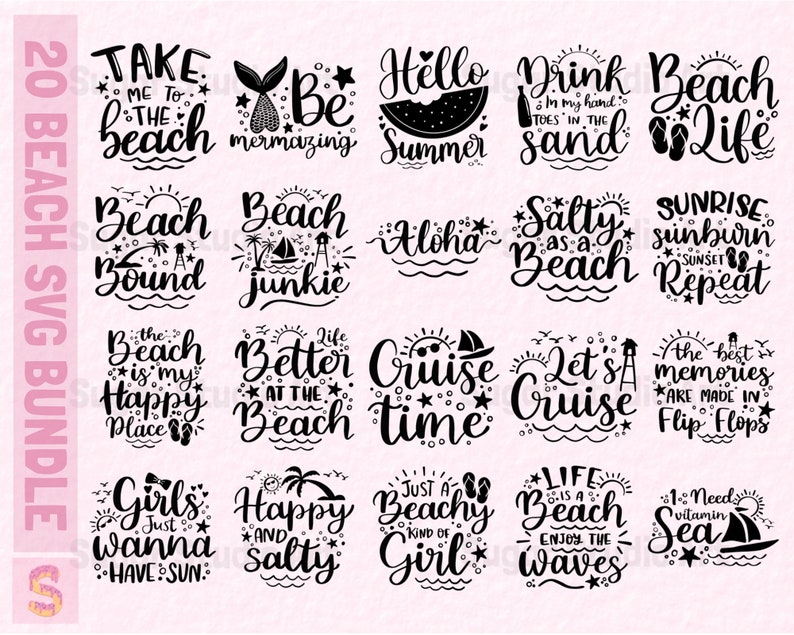 20 BEACH SVG BUNDLE
S
TAKE
ME TO
THE
beach
Be
mermazing
Hello
Summer
Drink
In my hand
TOES IN THE
sand
Beach
Life
Beach
Bound
Beach
junkie
Aloha
Salty
as a
Beach
SUNRISE
sunburn
SUNSET
Repeat
the
Beach
is my
Happy
Place
Life
Better
AT THE
Beach
Cruise
time
Let's
Cruise
the best
memories
ARE MADE IN
Flip Flops
Girls
Just
wanna
HAVE SUN.
Happy
AND
Salty
JUST A
Beachy
KIND OF
Girl
LIFE
IS A
Beach
ENJOY THE
waves
I Need
vitamin
Sea